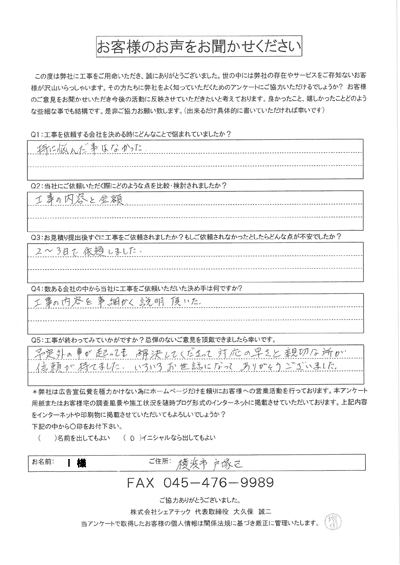 お客様のお声をお聞かせください
この度は弊社に工事をご用命いただき、誠にありがとうございました。世の中には弊社の存在やサービスをご存知ないお客
様が沢山いらっしゃいます。その方たちに弊社をよく知っていただくためのアンケートにご協力いただけるでしょうか? お客様
のご意見をお聞かせいただき今後の活動に反映させていただきたいと考えております。良かったこと、嬉しかったことどのよう
な些細な事でも結構です。是非ご協力お願い致します。(出来るだけ具体的に書いていただければ幸いです)
Q1:工事を依頼する会社を決める時にどんなことで悩まれていましたか?
特に悩んだ事はなかった
Q2:当社にご依頼いただく際にどのような点を比較・検討されましたか?
工事の内容と金額
Q3:お見積り提出後すぐに工事をご依頼されましたか?もしご依頼されなかったとしたらどんな点が不安でしたか?
2〜3日で依頼しました.
Q4:数ある会社の中から当社に工事をご依頼いただいた決め手は何ですか?
工事の内容を事細かく説明頂いた.
Q5:工事が終わってみていかがですか?忌憚のないご意見を頂戴できましたら幸いです。
予定外の事が起っても 解決してくださって 対応の早さと親切な所が
信頼が持てました. いろいろお世話になって ありがとうございました.
*弊社は広告宣伝費を極力かけない為にホームページだけを頼りにお客様への営業活動を行っております。本アンケート
用紙またはお客様宅の調査風景や施工状況を随時ブログ形式のインターネットに掲載させていただいております。上記内容
をインターネットや印刷物に掲載させていただいてもよろしいでしょうか?
下記の中から〇印をお付下さい。
( )名前を出してもよい ( O )イニシャルなら出してもよい
お名前: I 様 ご住所: 横浜市戸塚区
FAX 045-476-9989
ご協力ありがとうございました。
株式会社シェアテック 代表取締役 大久保 誠二
当アンケートで取得したお客様の個人情報は関係法規に基づき厳正に管理いたします。